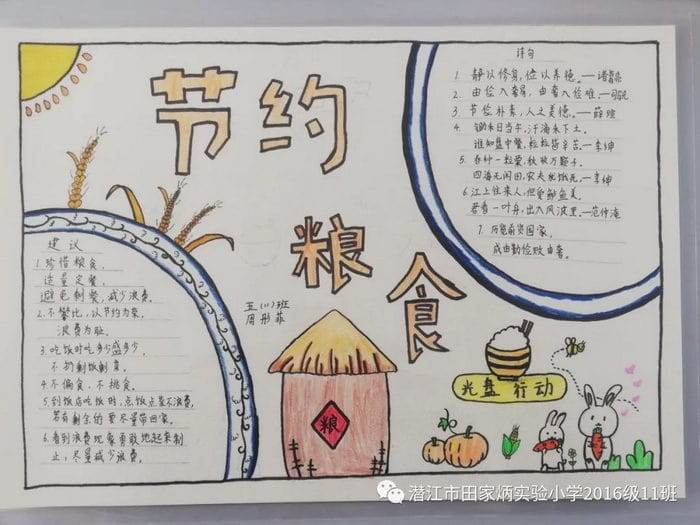 节约
粮食
诗句
1. 静以修身,俭以养德。——诸葛亮
2. 由俭入奢易,由奢入俭难。—司马光
3. 节俭朴素,人之美德。—薛瑄
4. 锄禾日当午,汗滴禾下土。
谁知盘中餐,粒粒皆辛苦。—李绅
5. 春种一粒粟,秋收万颗子。
四海无闲田,农夫犹饿死。—李绅
6. 江上往来人,但爱鲈鱼美。
若看一叶舟,出入风波里。—范仲淹
7. 历览前贤国家,
成由勤俭败由奢。
建议
1. 珍惜粮食,
适量定餐,
避免剩餐,减少浪费。
2. 不攀比,以节约为荣,
浪费为耻。
3. 吃饭时吃多少盛多少,
不扔剩饭剩菜。
4. 不偏食、不挑食。
5. 到饭店吃饭时,点饭点菜不浪费,
若有剩余的要尽量带回家。
6. 看到浪费现象勇敢地起来制
止,尽量减少浪费。
五(11)班
周彤菲
粮
光盘行动
潜江市田家炳实验小学2016级11班